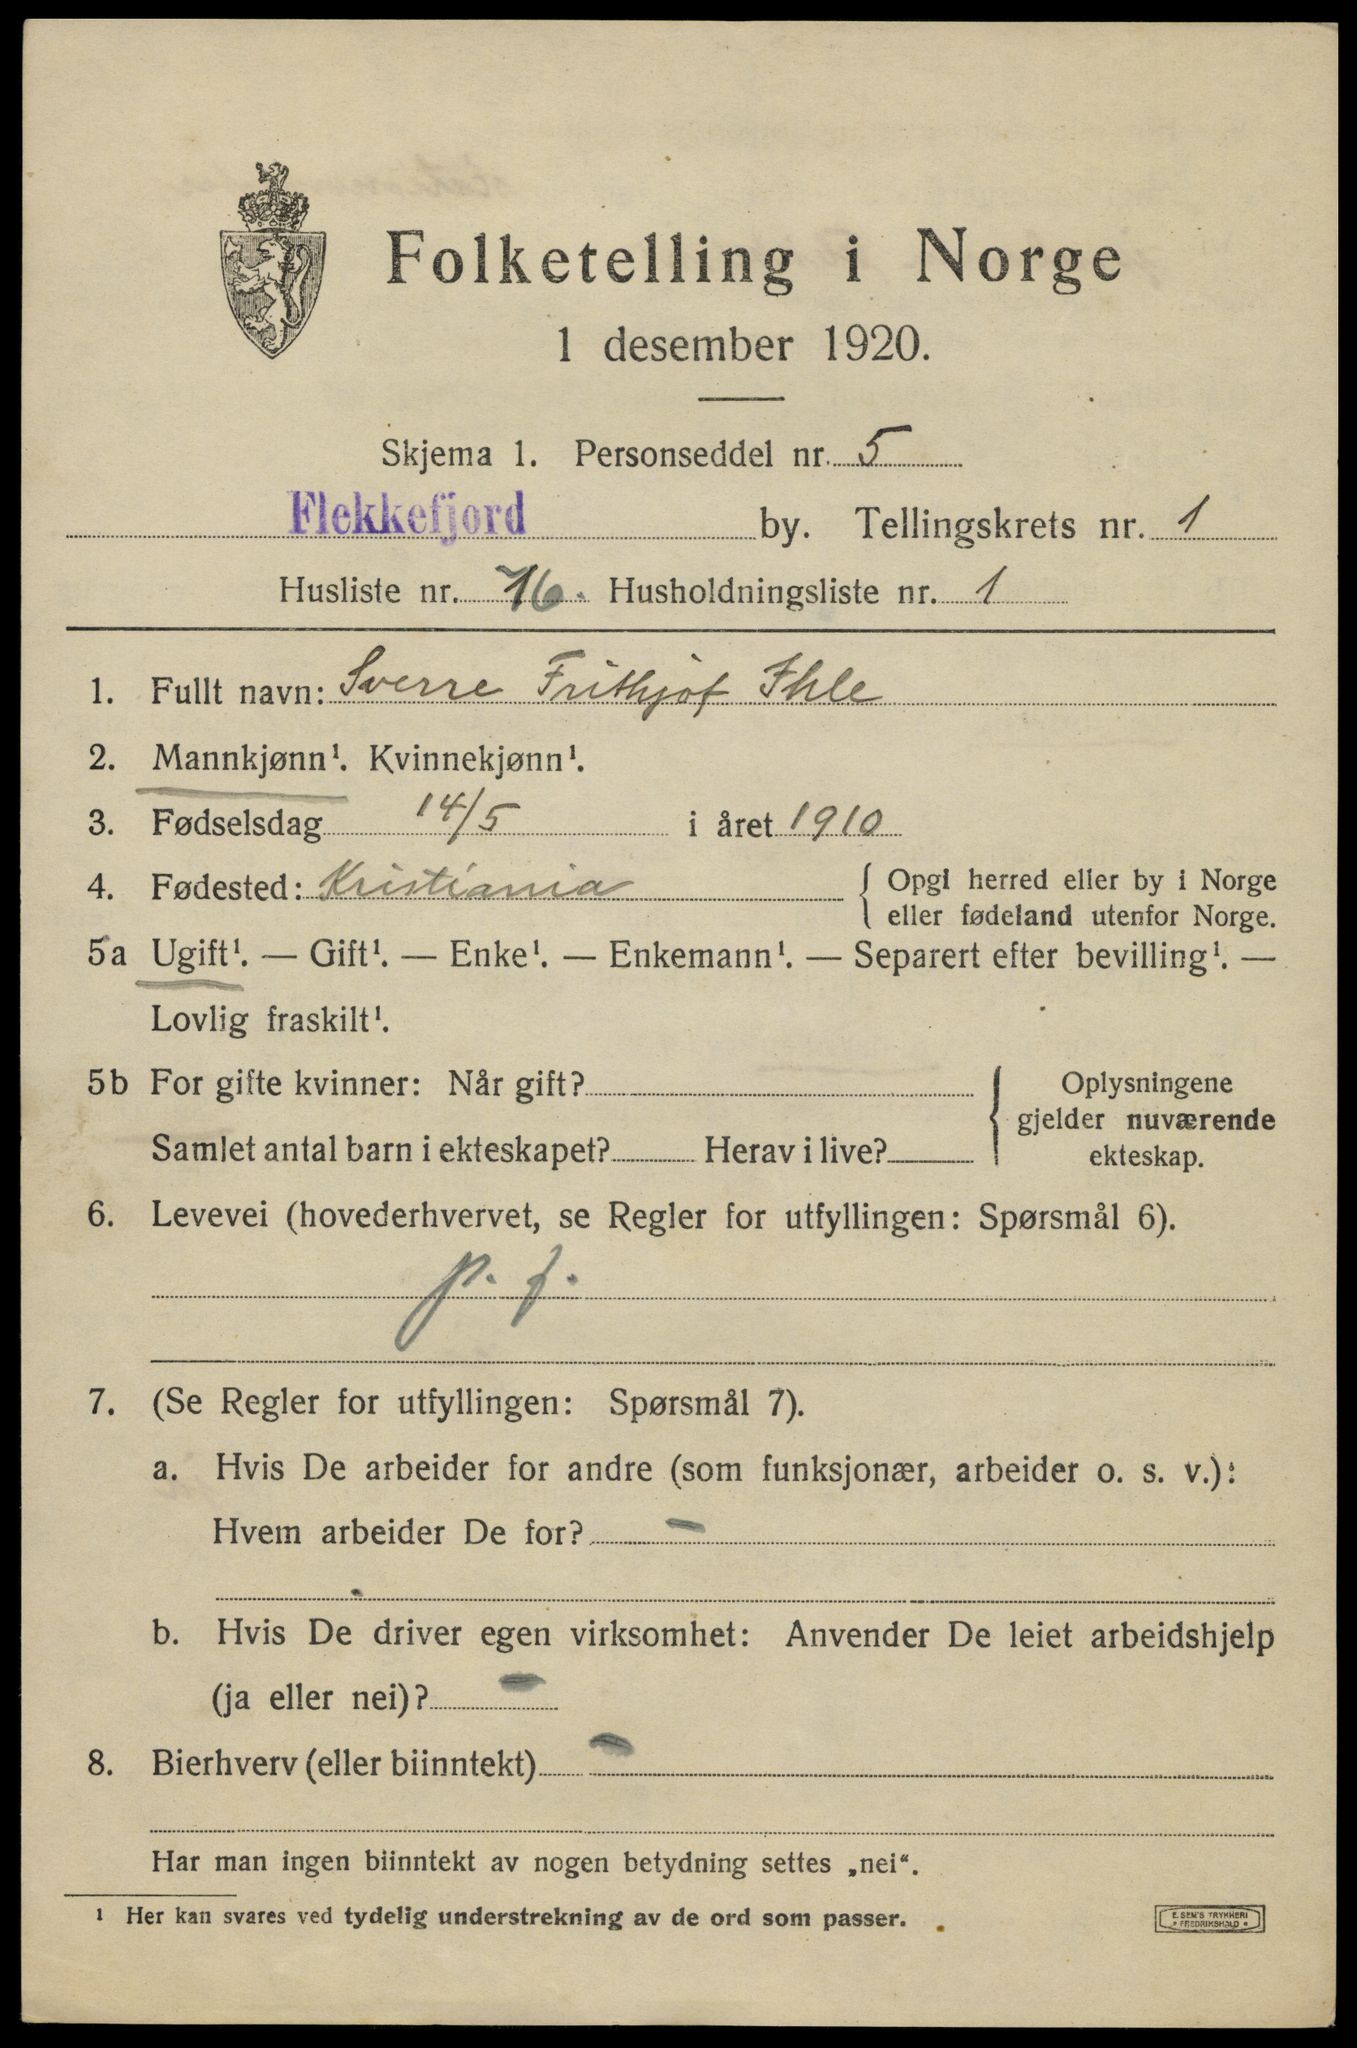 Folketelling i Norge
1 desember 1920.
Skjema 1. Personseddel nr. 5
Flekkefjord by. Tellingskrets nr. 1
Husliste nr. 76. Husholdningsliste nr. 1
1. Fullt navn: Sverre Frithjof Ihle
2. Mannkjønn¹. Kvinnekjønn¹.
3. Fødselsdag 14/5 i året 1910
4. Fødested: Kristiania { Opgi herred eller by i Norge
eller fødeland utenfor Norge.
5a Ugift¹. — Gift¹. — Enke¹. — Enkemann¹. — Separert efter bevilling¹. —
Lovlig fraskilt¹.
5b For gifte kvinner: Når gift? Oplysningene
gjelder nuværende
Samlet antal barn i ekteskapet? Herav i live? ekteskap.
6. Levevei (hovederhvervet, se Regler for utfyllingen: Spørsmål 6).
p. f.
7. (Se Regler for utfyllingen: Spørsmål 7).
a. Hvis De arbeider for andre (som funksjonær, arbeider o. s. v.):
Hvem arbeider De for? —
b. Hvis De driver egen virksomhet: Anvender De leiet arbeidshjelp
(ja eller nei)? —
8. Bierhverv (eller biinntekt) —
Har man ingen biinntekt av nogen betydning settes „nei“.
¹ Her kan svares ved tydelig understrekning av de ord som passer.
E. SEM'S TRYKKERI
* FREDRIKSHALD *